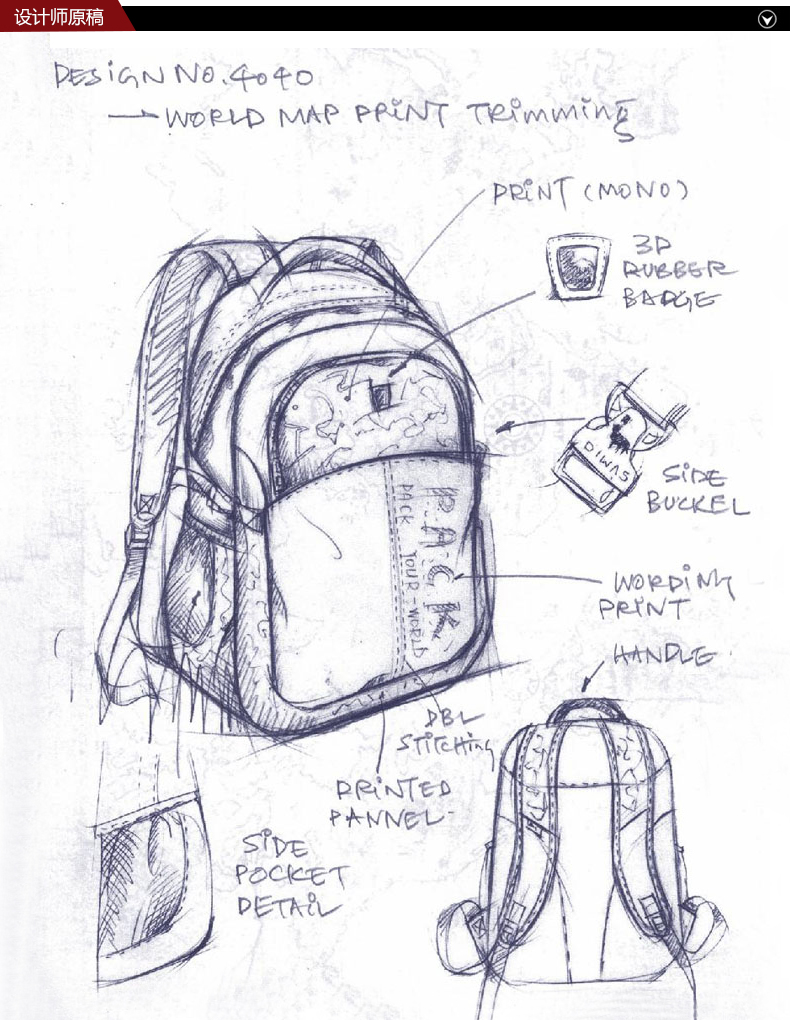 设计师原稿
DESIGN NO. 4040
→ WORLD MAP PRINT TRIMMING
PRINT (MONO)
3D
RUBBER
BADGE
DIWAS
SIDE
BUCKEL
PACK
PACK YOUR-WORLD
WORDING
PRINT
HANDLE
DBL
STITCHING
PRINTED
PANNEL
SIDE
POCKET
DETAIL